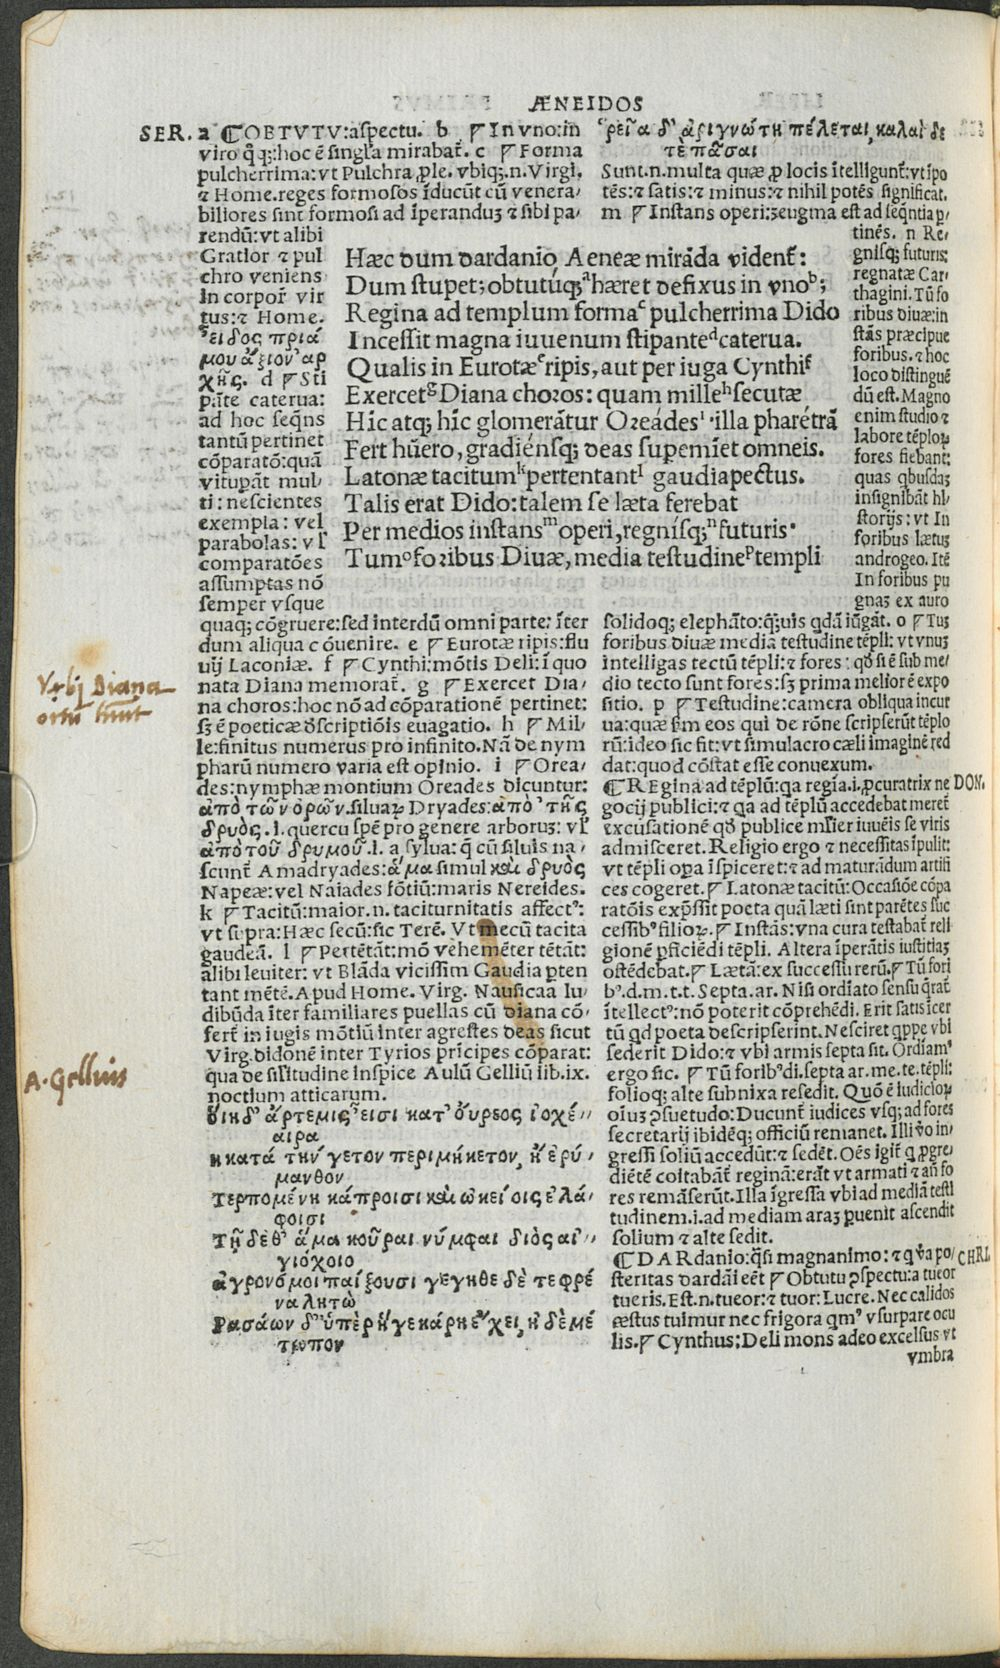 ÆNEIDOS
SER. a ¶OBTVTV:aspectu. b ¶In vno:in
viro q̃ q̃;:hoc ē singl'a mirabat̃. c ¶Forma
pulcherrima:vt Pulchra ,ple. vbiq;.n. Virgi.
⁊ Home.reges formosos īducūt cū venera/
biliores sint formosi ad īperanduȝ ⁊ sibi pa/
rendū:vt alibi
Gratior ⁊ pul
chro veniens
In corpor̃ vir
tus:⁊ Home.
εἶδος πριά
μου ἄξιον ἀρ
χῆς. d ¶Sti
pāte caterua:
ad hoc seq̄ns
tantū pertinet
cōparatō:quā
vitupāt mul
ti: nescientes
exempla: vel
parabolas: vl'
comparatōes
assumptas nō
semper vsque
quaq; cōgruere:sed interdū omni parte: īter
dum aliqua cōuenire. e ¶Eurotæ ripis:flu
uij Laconiæ. f ¶Cynthi:mōtis Deli:ī quo
nata Diana memorat̃. g ¶Exercet Dia/
na choros:hoc nō ad cōparationē pertinet:
sȝ ē poeticæ dscriptiōis euagatio. h ¶Mil/
le:finitus numerus pro infinito.Nā de nym
pharū numero varia est opinio. i ¶Orea/
des:nymphæ montium Oreades dicuntur:
ἀπὸ τῶν ὀρῶν.siluaꝝ Dryades:ἀπὸ τῆς
δρυὸς.i.quercu spē pro genere arboruȝ: vl'
ἀπὸ τοῦ δρυμοῦ.i. a sylua: q̄ cū siluis na/
scunt̃ Amadryades:ἅμα simul καὶ δρυὸς
Napeæ:vel Naiades fōtiū:maris Nereides.
k ¶Tacitū:maior.n. taciturnitatis affect⁹:
vt supra:Hæc secū:sic Terē. Vt mecū tacita
gaudeā. l ¶Pertētāt:mō vehemēter tētāt:
alibi leuiter: vt Blāda vicissim Gaudia p̱ten
tant mētē.Apud Home. Virg. Nausicaa lu/
dibūda īter familiares puellas cū diana cō/
fert̃ in iugis mōtiū inter agrestes deas sicut
Virg.didonē inter Tyrios prīcipes cōparat:
qua de sil'itudine inspice Aulū Gelliū lib.ix.
noctium atticarum.
οἵη δ' ἄρτεμις εἶσι κατ' οὔρεος ἰοχέ/
αιρα
ἢ κατὰ τηΰγετον περιμήκετον, ἢ ἐρύ/
μανθον
Τερπομένη κάπροισι καὶ ὠκείοις ἐλά/
φοισι
Τῇ δέ θ' ἅμα κοῦραι νύμφαι διὸς αἰ/
γιόχοιο
ἀγρονόμοι παίξουσι γέγηθε δὲ τε φρέ
να λητὼ
Ρασάων δ' ὑπὲρ ἥγε κάρη ἔχει, ἠδὲ μέ
τωπον
Hæc dum dardanio, Aeneæ mirāda vident̃:
Dum stupet; obtutúq;ᵃ hæret defixus in vnoᵇ;
Regina ad templum formaᶜ pulcherrima Dido
Incessit magna iuuenum stipanteᵈ caterua.
Qualis in Eurotæᵉ ripis, aut per iuga Cynthiᶠ
Exercetᵍ Diana choros: quam milleʰ secutæ
Hīc atq; hīc glomerātur Oreádesⁱ ·illa pharétrā
Fert húero, gradiénsq; deas supemīet omneis.
Latonæ tacitumᵏ pertentantˡ gaudiapectus.
Talis erat Dido:talem se læta ferebat
Per medios instansᵐ operi, regnísq;ⁿ futuris·
Tumᵒ foribus Diuæ, media testudineᵖ templi
ῥεῖα δ' ἀριγνώτη πέλεται, καλαὶ δε
τὲ πᾶσαι
Sunt.n.multa quæ ꝓ locis ītelligunt̃:vt ipo
tēs:⁊ satis:⁊ minus:⁊ nihil potēs significat.
m ¶Instans operi:zeugma est ad seq̄ntia p̱/
tinēs. n Re/
gnisq; futuris:
regnatæ Car/
thagini. Tū fo
ribus diuæ:in
stās præcipue
foribus.⁊ hoc
loco distinguē
dū est.Magno
enim studio ⁊
labore tēploꝝ
fores fiebant:
quas qbusdaȝ
insignibāt hi/
storijs: vt In
foribus lætuȝ
androgeo. Itē
In foribus pu
gnaȝ ex auro
solidoq; elephāto:q̃;uis qdā iūgāt. o ¶Tuȝ
foribus diuæ mediā testudine tēpli: vt vnuȝ
intelligas tectū tēpli:⁊ fores: qð si ē sub me/
dio tecto sunt fores: sȝ prima meliorē expo
sitio. p ¶Testudine:camera obliqua incur
ua:quæ s̄m eos qui de rōne scripserūt tēplo
rū:ideo sic fit:vt simulacro cæli imaginē red
dat:quod cōstat esse conuexum.
¶REgina ad tēplū:qa regīa.i.ꝓcuratrix ne DON.
gocij publici:⁊ qa ad tēplū accedebat meret̃
excusationē qð publice ml'ier iuuēis se viris
admisceret. Religio ergo ⁊ necessitas īpulit:
vt tēpli op̱a īspiceret:⁊ ad maturādum artifi
ces cogeret.¶Latonæ tacitū:Occasiōe cōpa
ratōis exp̄ssit poeta quā læti sint parētes suc
cessib⁹ filioꝝ.¶Instās:vna cura testabat̃ reli
gionē ꝑficiēdi tēpli. Altera īperātis iustitiaȝ
ostēdebat.¶Lætā:ex successu rerū.¶Tū fori
b⁹.d.m.t.t. Septa.ar. Nisi ordīato sensu q̃rat̃
ītellect⁹:nō poterit cōprehēdi. Erit satis īcer
tū qd poeta descripserint.Nesciret qppe vbi
sederit Dido:⁊ vbi armis septa sit. Ordiam⁹
ergo sic. ¶Tū forib⁹di.septa ar.me.te.tēpli:
folioq; alte subnixa resedit. Quō ē iudicioꝝ
oīuȝ ꝯsuetudo:Ducunt̃ iudices vsq; ad fores
secretarij ibidēq; officiū remanet. Illi v̄o in/
gressi soliū accedūt:⁊ sedēt. Oēs igit̃ q ꝓgre/
diētē coītabāt̃ reginā:erāt vt armati ⁊ añ fo
res remāserūt.Illa īgressa vbi ad mediā testi
tudinem.i.ad mediam araȝ p̱uenit ascendit
solium ⁊ alte sedit.
¶DARdanio:q̃si magnanimo:⁊ q v̄a po/ CHRI.
steritas dardāi eēt ¶Obtutu ꝯspectu:a tueor
tueris.Est.n.tueor:⁊ tuor: Lucre.Nec calidos
æstus tuimur nec frigora qm⁹ vsurpare ocu
lis.¶Cynthus:Deli mons adeo excelsus vt
vmbra
Vrbj Diana
A. Gellius